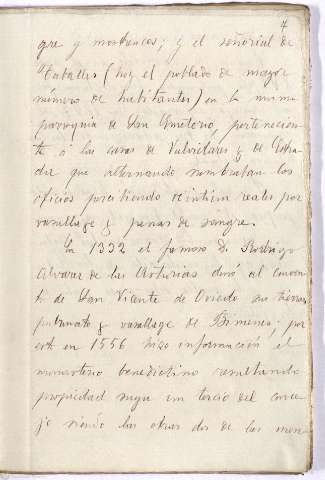 4
gre y mostrencos; y el señorial de
Caballes (hoy el poblado de mayor
número de habitantes) en la misma
parroquia de San Emeterio, pertenecien-
te á las casas de Valvidares y de Estra-
da que alternando nombraban los
oficios percibiendo veintiun reales por
vasallage y penas de sangre.
En 1332 el famoso D. Rodrigo
Alvarez de las Asturias donó al conven-
to de San Vicente de Oviedo su tierra
patronato y vasallage de Bimenes; por
est en 1556 hizo información el
monasterio benedictino resultando
propiedad suya un tercio del conce-
jo siendo las otras dos de los men-